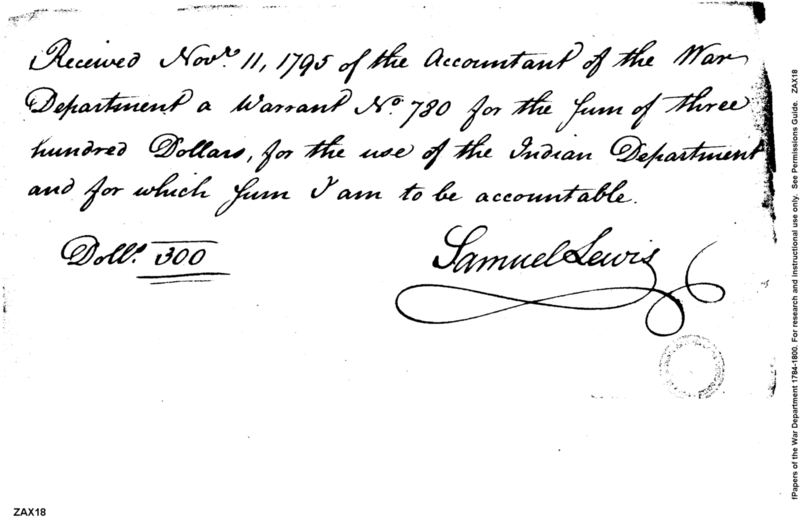 Received Novr. 11, 1795 of the Accountant of the War
Department a Warrant No. 780 for the sum of three
hundred Dollars, for the use of the Indian Department
and for which sum I am to be accountable.
Dolls. 300
Samuel Lewis
ZAX18
fPapers of the War Department 1784-1800. For research and instructional use only. See Permissions Guide. ZAX18